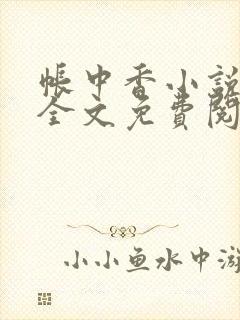 帐中香小说
全文免费阅
小小鱼水中游